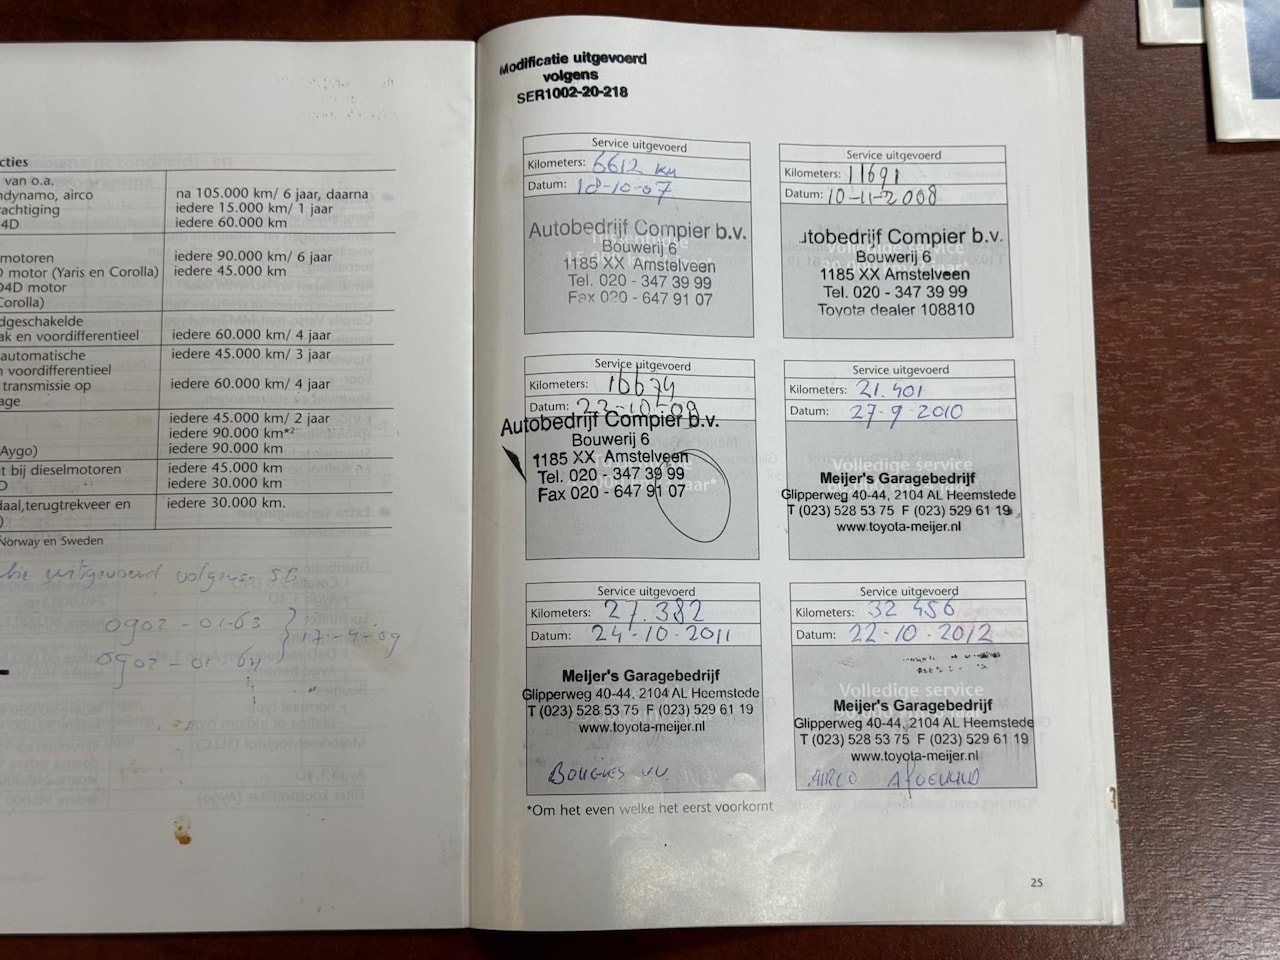 cties
van o.a.
ndynamo, airco na 105.000 km/ 6 jaar, daarna
rachtiging iedere 15.000 km/ 1 jaar
4D iedere 60.000 km
motoren iedere 90.000 km/ 6 jaar
D motor (Yaris en Corolla) iedere 45.000 km
D4D motor
Corolla)
dgeschakelde
ak en voordifferentieel iedere 60.000 km/ 4 jaar
automatische iedere 45.000 km/ 3 jaar
n voordifferentieel
transmissie op iedere 60.000 km/ 4 jaar
age
iedere 45.000 km/ 2 jaar
iedere 90.000 km*2
Aygo) iedere 90.000 km
t bij dieselmotoren iedere 45.000 km
D iedere 30.000 km
daal,terugtrekveer en iedere 30.000 km.
)
Norway en Sweden
uitgevoerd volgens SB
0902-01-63
17-9-09
0902-01-64
Modificatie uitgevoerd
volgens
SER1002-20-218
Service uitgevoerd
Kilometers: 6612 km
Datum: 18-10-07
Autobedrijf Compier b.v.
Bouwerij 6
1185 XX Amstelveen
Tel. 020 - 347 39 99
Fax 020 - 647 91 07
Service uitgevoerd
Kilometers: 11691
Datum: 10-11-2008
utobedrijf Compier b.v.
Volledige service
Bouwerij 6
1185 XX Amstelveen
Tel. 020 - 347 39 99
Toyota dealer 108810
Service uitgevoerd
Kilometers: 16674
Datum: 22-10-09
Autobedrijf Compier b.v.
Bouwerij 6
1185 XX Amstelveen
Tel. 020 - 347 39 99
Fax 020 - 647 91 07
Service uitgevoerd
Kilometers: 21.401
Datum: 27-9-2010
Volledige service
Meijer's Garagebedrijf
Glipperweg 40-44, 2104 AL Heemstede
T (023) 528 53 75 F (023) 529 61 19
www.toyota-meijer.nl
Service uitgevoerd
Kilometers: 27.382
Datum: 24-10-2011
Meijer's Garagebedrijf
Glipperweg 40-44, 2104 AL Heemstede
T (023) 528 53 75 F (023) 529 61 19
www.toyota-meijer.nl
BOUGIES VV
Service uitgevoerd
Kilometers: 32 456
Datum: 22-10-2012
Volledige service
Meijer's Garagebedrijf
Glipperweg 40-44, 2104 AL Heemstede
T (023) 528 53 75 F (023) 529 61 19
www.toyota-meijer.nl
AIRCO
*Om het even welke het eerst voorkomt
25